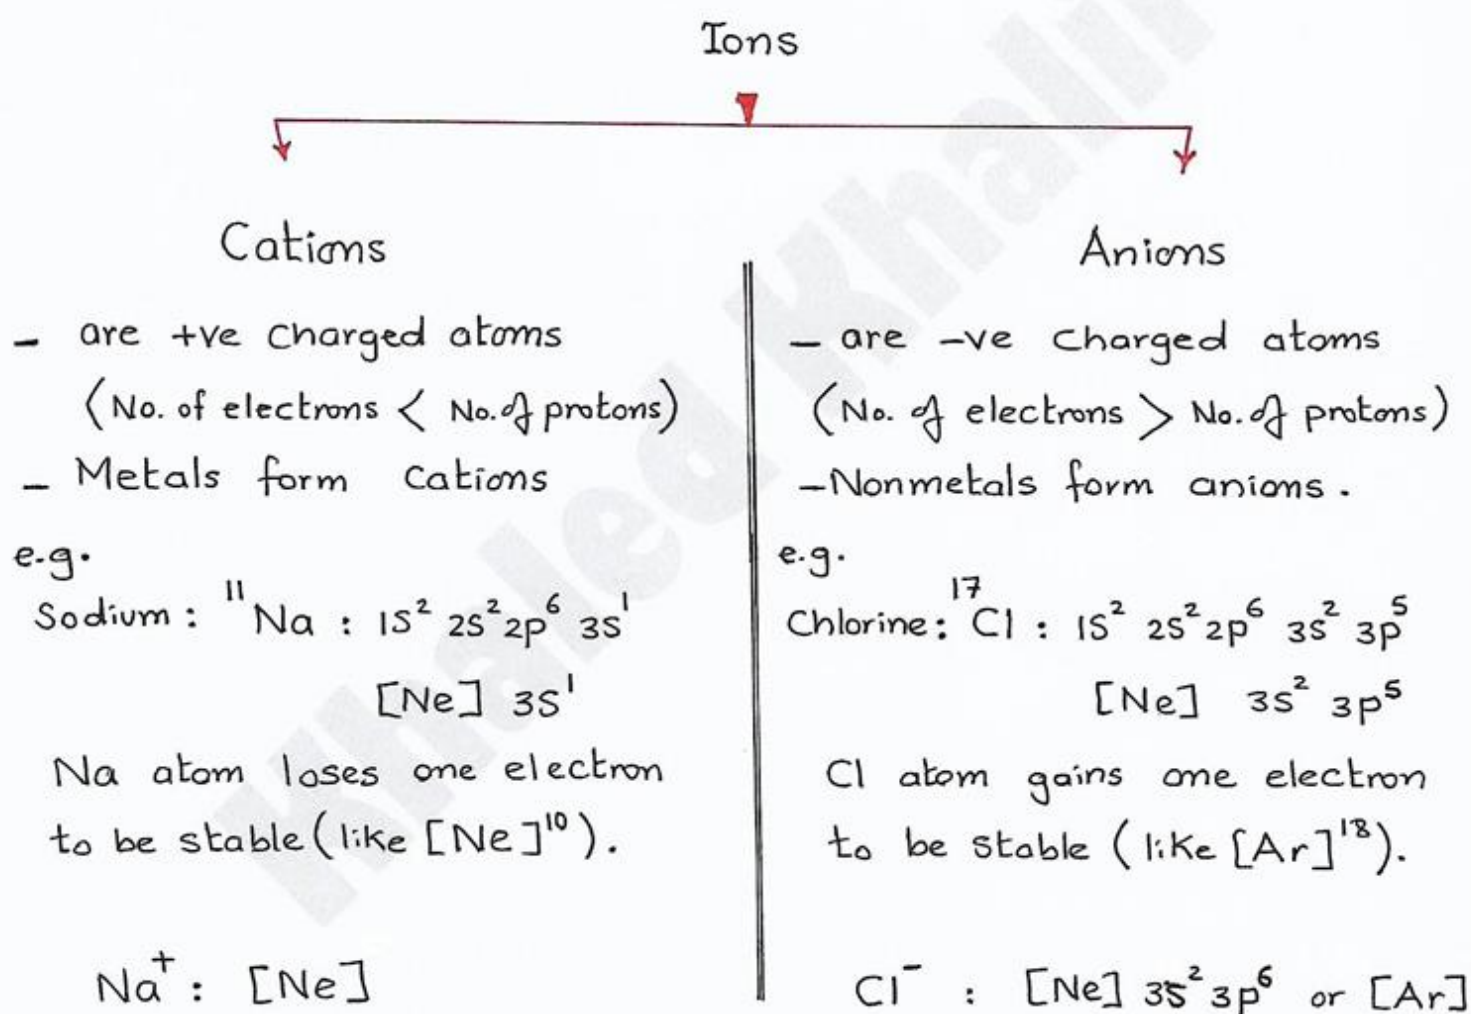 Ions
Cations
- are +ve charged atoms
(No. of electrons < No. of protons)
- Metals form cations
e.g.
Sodium : ¹¹Na : 1S² 2S² 2p⁶ 3S¹
[Ne] 3S¹
Na atom loses one electron
to be stable (like [Ne]¹⁰).
Na⁺ : [Ne]
Anions
- are -ve charged atoms
(No. of electrons > No. of protons)
- Nonmetals form anions.
e.g.
Chlorine : ¹⁷Cl : 1S² 2S² 2p⁶ 3S² 3p⁵
[Ne] 3S² 3p⁵
Cl atom gains one electron
to be stable (like [Ar]¹⁸).
Cl⁻ : [Ne] 3S² 3p⁶ or [Ar]
Khaled Khalil